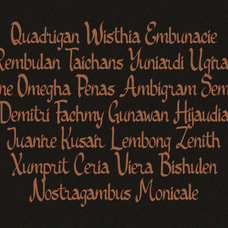 Quadrigan Wisthia Embunacie
Rembulan Taichans Yuniardi Ugra
ne Omegha Penas Ambigram Sem
Demitri Fachmy Gunawan Hijaudia
Juanire Kusair Lembong Zenith
Xumprit Ceria Viera Bishulen
Nostragambus Monicale